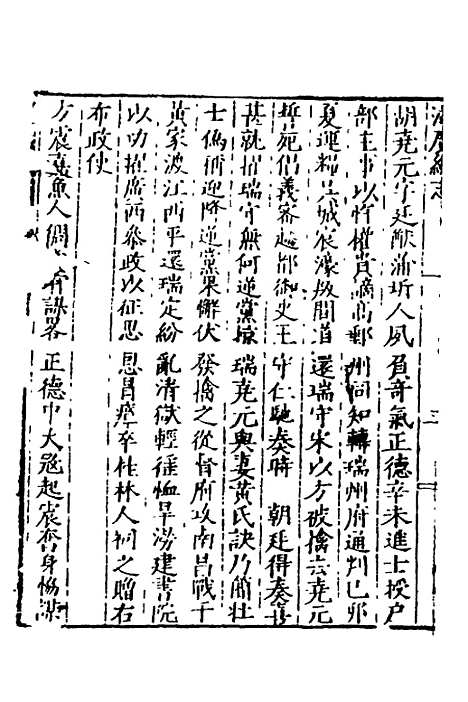 湖廣總志
胡堯元字廷猷蒲圻人夙負奇氣正德辛未進士授戶
部主事以忤權貴謫高郵州同知轉瑞州府通判已卯
夏運糧省城宸濠叛間道還瑞守宋以方被擒去堯元
誓死倡義密趨都御史王守仁馳奏時 朝廷得奏喜
甚就擢瑞守無何逆黨掠瑞堯元與妻黃氏訣乃簡壯
士偽稱迎降逆黨果懈伏發擒之從督府攻南昌戰于
黃家渡江西平還瑞定紛亂清獄輕徭恤旱澇建書院
以功擢廣西參政以征思恩冒瘴卒桂林人祠之贈右
布政使
方宸嘉魚人倜 有謀畧正德中大盜起宸奮身惕謀